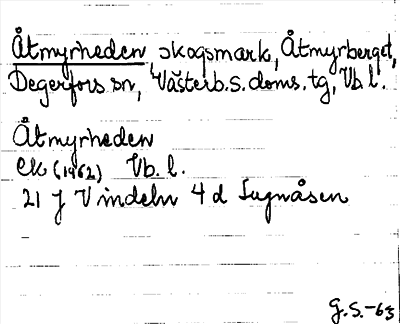 Åtmyrheden, skogsmark, Åtmyrberget,
Degerfors sn, Västerb.s. doms. tg, Vb. l.
Åtmyrheden
Ek (1962) Vb. l.
21 J Vindeln 4 d Lugnåsen
G.S.-63